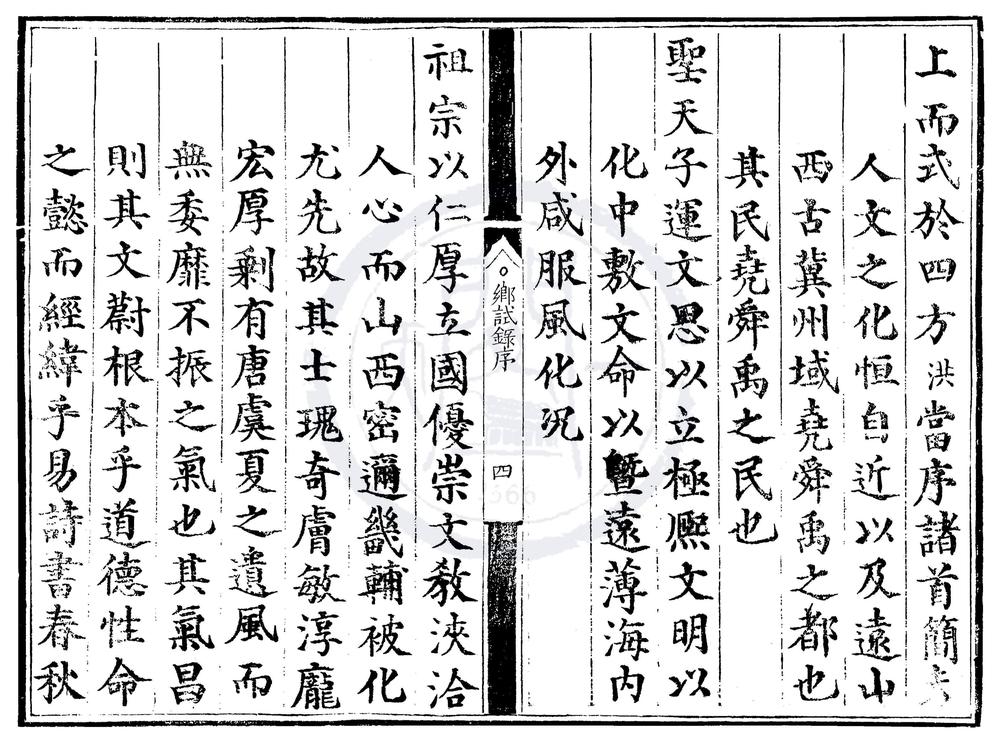 上而式於四方洪當序諸首簡夫
人文之化恒自近以及遠山
西古冀州域堯舜禹之都也
其民堯舜禹之民也
聖天子運文思以立極熙文明以
化中敷文命以暨遠薄海内
外咸服風化况
鄉試錄序
四
祖宗以仁厚立國優崇文教浹洽
人心而山西密邇畿輔被化
尤先故其士瑰奇膚敏淳龐
宏厚剩有唐虞夏之遺風而
無委靡不振之氣也其氣昌
則其文蔚根本乎道德性命
之懿而經緯乎易詩書春秋